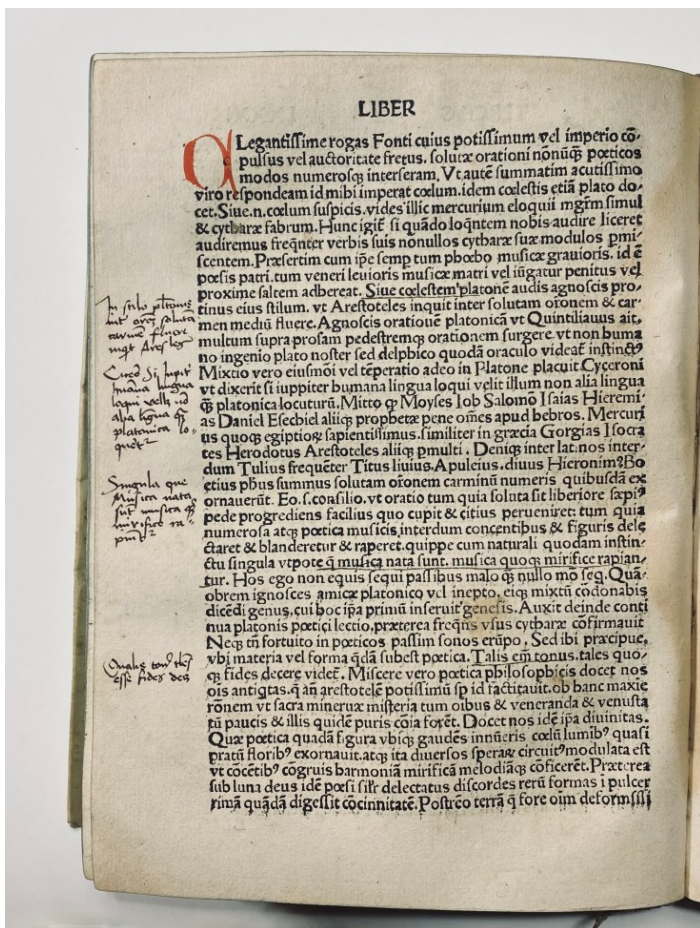 LIBER
QLegantissime rogas Fonti cuius potissimum vel imperio cō-
pulsus vel auctoritate fretus. solutæ orationi nōnūq̃ poeticos
modos numerosq̃ interseram. Vt autē summatim acutissimo
viro respondeam id mihi imperat cœlum. idem cœlestis etiā plato do-
cet. Siue .n. cœlum suspicis. vides illic mercurium eloquii mgr̄m simul
& cytharæ fabrum. Hunc igit̃ si quādo loq̄ntem nobis audire liceret
audiremus freq̄nter verbis suis nonullos cytharæ suæ modulos p̱mi-
scentem. Præsertim cum ip̄e semp̱ tum phœbo musicæ grauioris. id ē
poesis patri. tum veneri leuioris musicæ matri vel iūgatur penitus vel
proxime saltem adhereat. Siue cœlestem platonē audis agnoscis pro-
tinus eius stilum. vt Arestoteles inquit inter solutam or̄onem & car-
men mediū fluere. Agnoscis orationē platonicā vt Quintilianus ait.
multum supra prosam pedestremq̃ orationem surgere. vt non huma
no ingenio plato noster sed delphico quodā oraculo videat̃ instinctꝰ
Mixtio vero eiusmōi vel tēperatio adeo in Platone placuit Cyceroni
vt dixerit si iuppiter humana lingua loqui velit illum non alia lingua
q̃ platonica locuturū. Mitto q̱ Moyses Iob Salomō Isaias Hieremi-
as Daniel Esechiel aliiq̃ prophetæ pene om̄es apud hebros. Mercuri
us quoq̃ egiptioꝝ sapientissimus. similiter in græcia Gorgias Isocra
tes Herodotus Arestoteles aliiq̃ p̱multi. Deniq̃ inter latinos inter-
dum Tulius frequēter Titus liuius. Apuleius. diuus Hieronimꝰ Bo
etius p̱bus summus solutam or̄onem carminū numeris quibusdā ex
ornauerūt. Eo .s. consilio. vt oratio tum quia soluta sit liberiore sæpiꝰ
pede progrediens facilius quo cupit & citius perueniret: tum quia
numerosa atq̃ poetica musicis interdum concentibus & figuris dele
ctaret & blanderetur & raperet. quippe cum naturali quodam instin-
ctu singula vtpote q̄ musica nata sunt. musica quoq̃ mirifice rapian-
tur. Hos ego non equis sequi passibus malo q̃ nullo mō seq̱. Quā-
obrem ignosces amicæ platonico vel inepto. eiq̃ mixtū cōdonabis
dicēdi genus. cui hoc ip̄a primū inseruit genesis. Auxit deinde conti
nua platonis poetici lectio. præterea freq̄ns vsus cytharæ cōfirmauit
Neq̃ tn̄ fortuito in poeticos passim sonos erūpo. Sed ibi præcipue.
vbi materia vel forma q̄dā subest poetica. Talis em̄ tonus. tales quo-
q̃ fides decere videt̃. Miscere vero poetica philosophicis docet nos
oīs antiq̱tas. q̄ an̄ arestotelē potissimū sp̱ id factitauit. ob hanc maxīe
rōnem vt sacra mineruæ misteria tum oībus & veneranda & venusta
tū paucis & illis quidē puris cōīa forēt. Docet nos idē ip̄a diuinitas.
Quæ poetica quadā figura vbiq̃ gaudēs innūeris cœlū lumibꝰ quasi
pratū floribꝰ exornauit. atq̃ ita diuersos speraꝝ circuitꝰ modulata est
vt cōcētibꝰ cōgruis harmoniā mirificā melodiāq̃ cōficerēt. Præterea
sub luna deus idē poesi sil̄r delectatus discordes rerū formas ī pulcer
rimā quādā digessit cōcinnitatē. Postrēo terrā q̄ fore oīm deformissi
In stilo pltonis
int̃ orōez solutā
carmē fluere
inqt Ares ler
Cicero Si Jupit̃
humana lingua
loqui vellz nō
alia lingua q̃
platonica lo-
quet̃
Singula que
Musica nata
sūt musica q̃
mirifice ra-
piunt̃
Qualis tonꝰ tles
esse fides dec̃